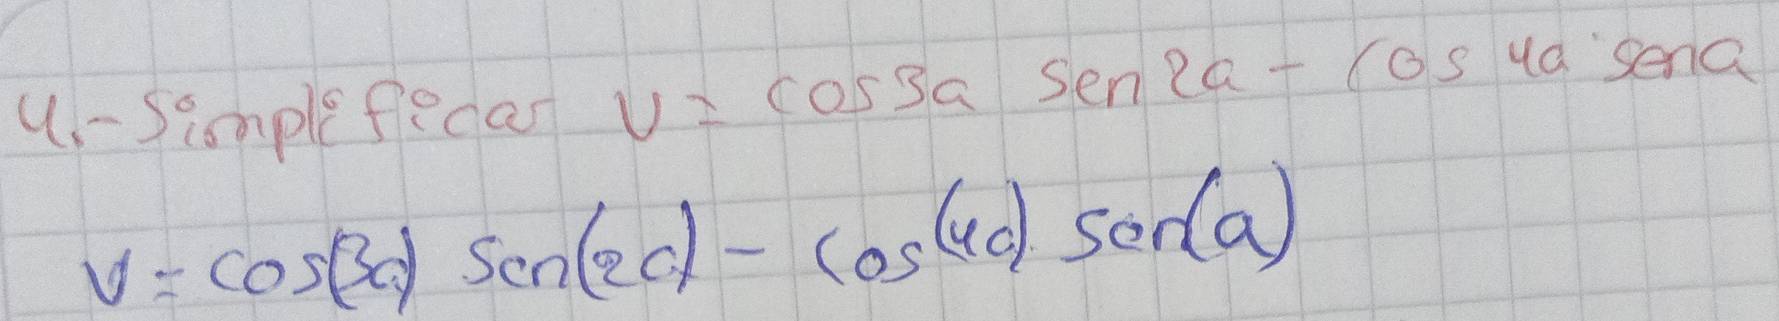 4.- Simplificar V = cos3a sen2a - cos 4a · sena
V = cos(3a) sen(2a) - cos(4a). sen(a)